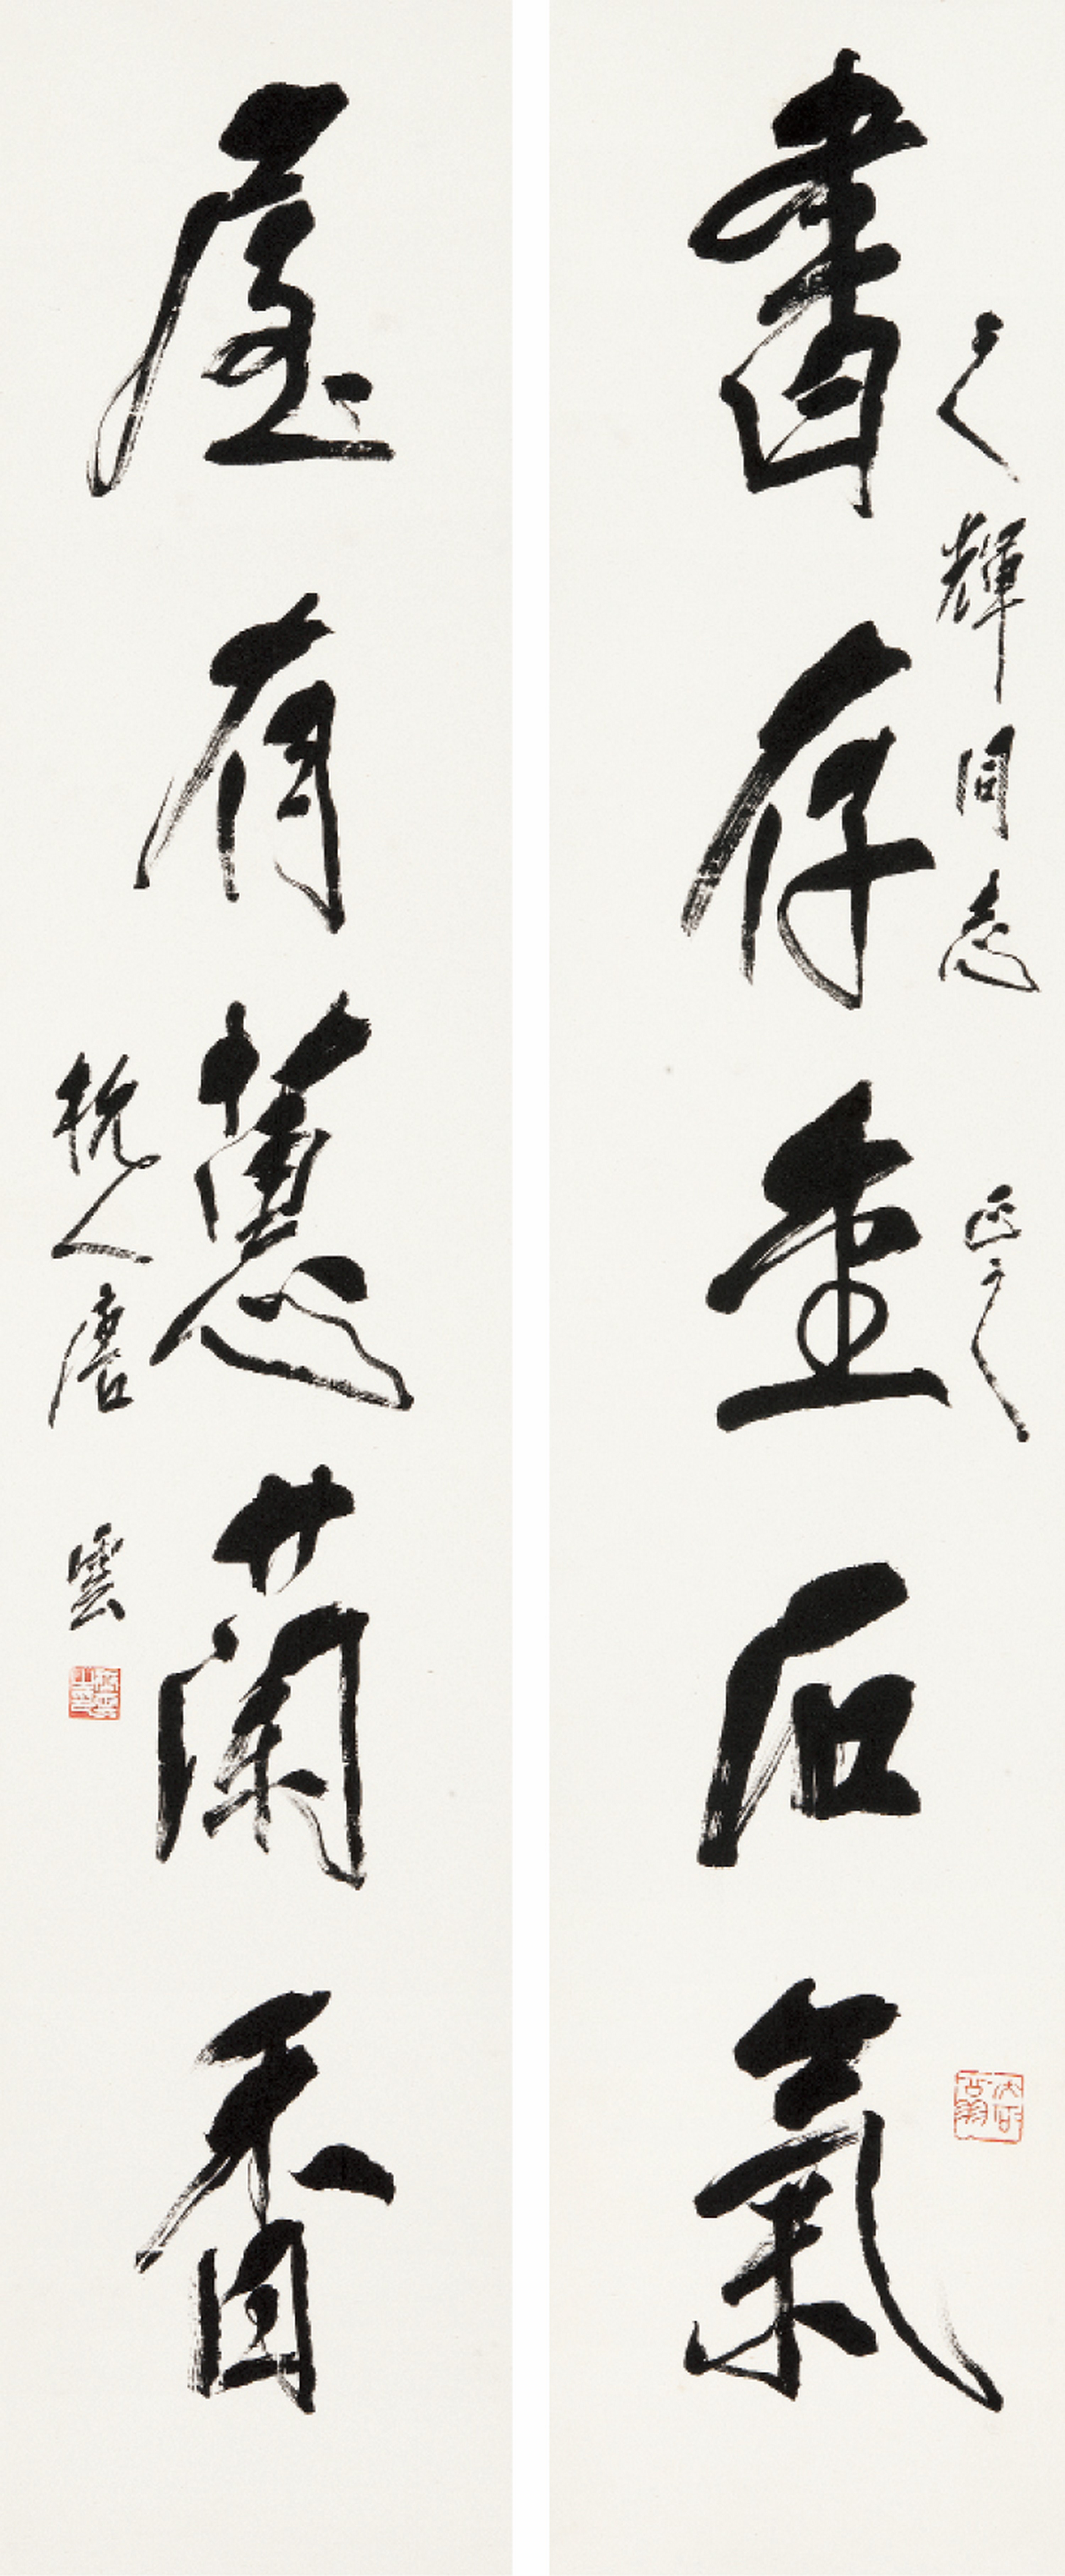 書存金石氣
輝同志
正之
屋有蕙蘭香
杭人唐雲